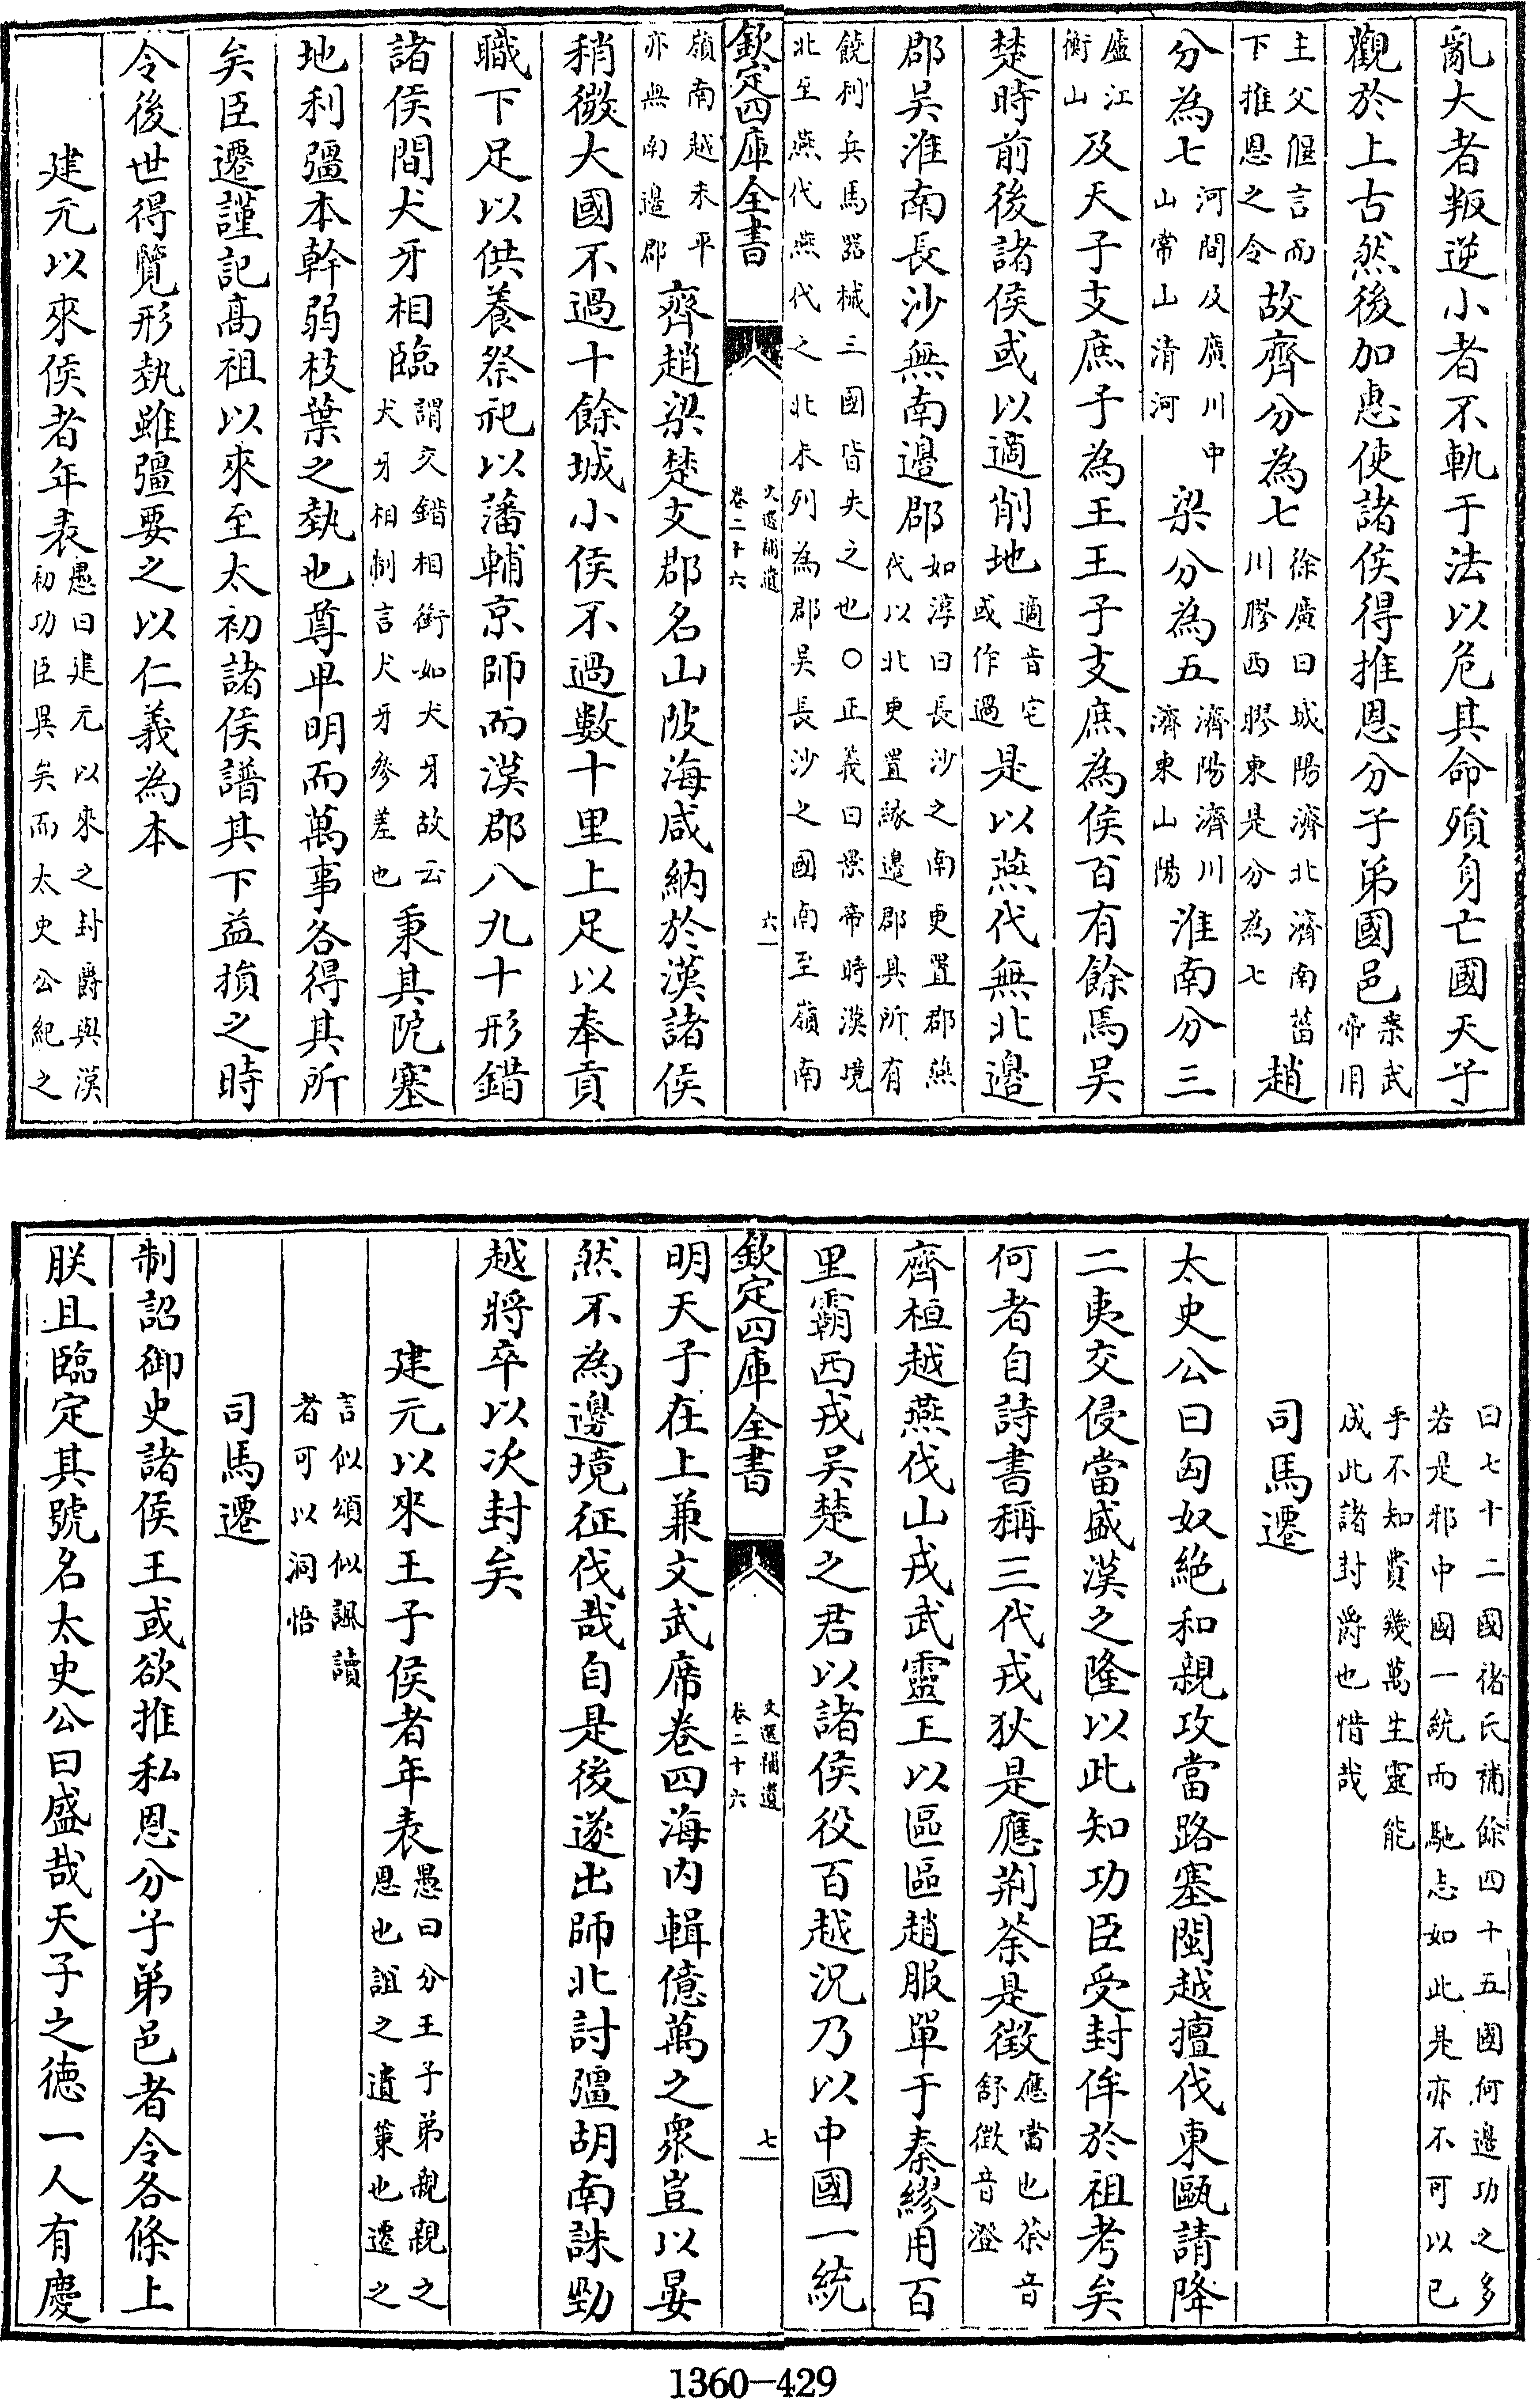 亂大者叛逆小者不軌于法以危其命殞身亡國天子
觀於上古然後加惠使諸侯得推恩分子弟國邑案武帝用
主父偃言而下推恩之令故齊分為七徐廣曰城陽濟北濟南菑川膠西膠東是分為七趙
分為七河間及廣川中山常山清河梁分為五濟陽濟川濟東山陽淮南分三
廬江衡山及天子支庶子為王王子支庶為侯百有餘焉吳
楚時前後諸侯或以適削地適音宅或作過是以燕代無北邊
郡吳淮南長沙無南邊郡如淳曰長沙之南更置郡燕代以北更置緣邊郡具所有
饒利兵馬器械三國皆失之也○正義曰景帝時漢境北至燕代燕代之北未列為郡吳長沙之國南至嶺南
欽定四庫全書
文選補遺
卷二十六
六
嶺南越未平亦無南邊郡齊趙梁楚支郡名山陂海咸納於漢諸侯
稍微大國不過十餘城小侯不過數十里上足以奉貢
職下足以供養祭祀以藩輔京師而漢郡八九十形錯
諸侯間犬牙相臨謂交錯相銜如犬牙故云犬牙相制言犬牙參差也秉其阨塞
地利彊本幹弱枝葉之埶也尊卑明而萬事各得其所
矣臣遷謹記高祖以來至太初諸侯譜其下益損之時
令後世得覽形埶雖彊要之以仁義為本
建元以來侯者年表愚曰建元以來之封爵與漢初功臣異矣而太史公紀之
曰七十二國褚氏補餘四十五國何邊功之多若是邪中國一統而馳志如此是亦不可以已
乎不知費幾萬生靈能成此諸封爵也惜哉
司馬遷
太史公曰匈奴絶和親攻當路塞閩越擅伐東甌請降
二夷交侵當盛漢之隆以此知功臣受封侔於祖考矣
何者自詩書稱三代戎狄是應荆荼是徴應當也荼音舒徴音澄
齊桓越燕伐山戎武靈王以區區趙服單于秦繆用百
里霸西戎吳楚之君以諸侯役百越況乃以中國一統
欽定四庫全書
文選補遺
卷二十六
七
明天子在上兼文武席卷四海内輯億萬之衆豈以晏
然不為邊境征伐哉自是後遂出師北討彊胡南誅勁
越將卒以次封矣
建元以來王子侯者年表愚曰分王子弟親親之恩也誼之遺策也遷之
言似頌似諷讀者可以洞悟
司馬遷
制詔御史諸侯王或欲推私恩分子弟邑者令各條上
朕且臨定其號名太史公曰盛哉天子之徳一人有慶
1360-429